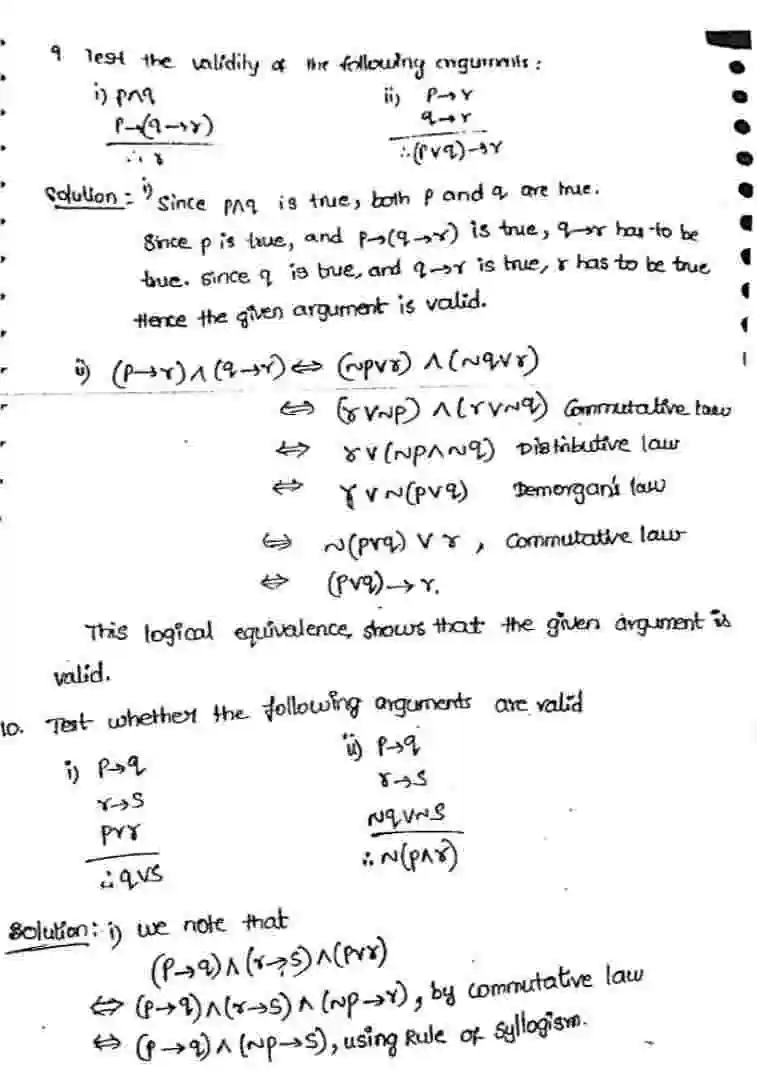 9 Test the validity of the following arguments:
i) p∧q ii) p→r
p→(q→r) q→r
∴ r ∴(p∨q)→r
Solution:- i) Since p∧q is true, both p and q are true.
Since p is true, and p→(q→r) is true, q→r has to be
true. since q is true, and q→r is true, r has to be true
Hence the given argument is valid.
ii) (p→r)∧(q→r)⇔ (~p∨r) ∧(~q∨r)
⇔ (r∨~p) ∧(r∨~q) Commutative law
⇔ r∨(~p∧~q) Distributive law
⇔ r∨~(p∨q) Demorgan's law
⇔ ~(p∨q) ∨ r , Commutative law
⇔ (p∨q)→r.
This logical equivalence, shows that the given argument is
valid.
10. Test whether the following arguments are valid
i) p→q ii) p→q
r→s r→s
p∨r ~q∨~s
∴q∨s ∴~(p∧r)
Solution: i) we note that
(p→q)∧(r→s)∧(p∨r)
⇔ (p→q)∧(r→s)∧(~p→r), by commutative law
⇔ (p→q)∧(~p→s), using Rule of syllogism.